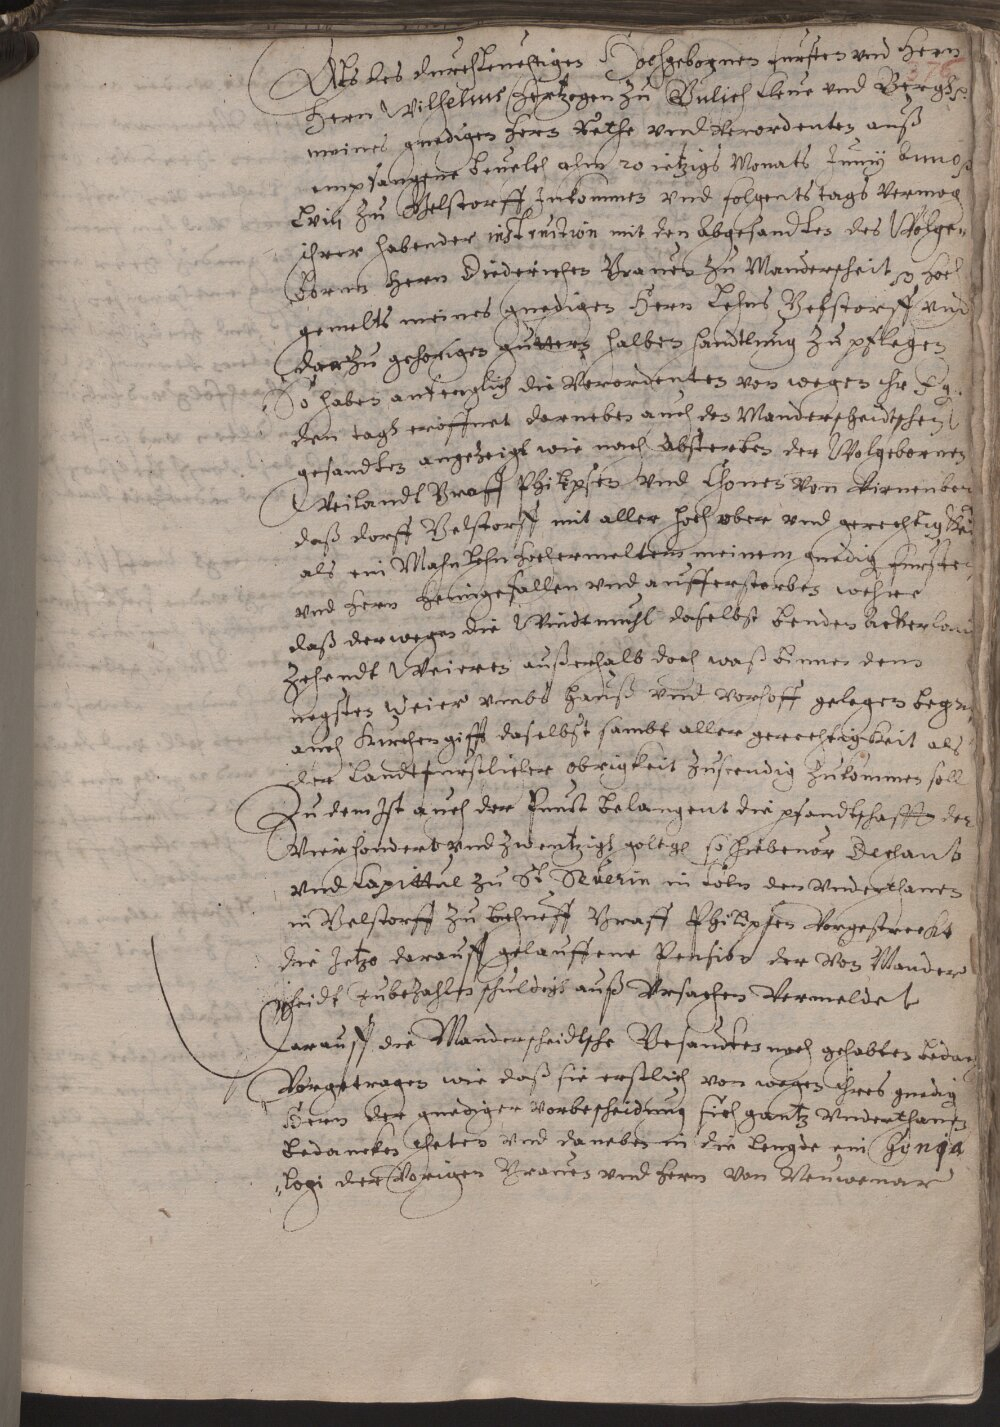 Als des durchleuchtigen Hochgebornen fursten vnd Hern
376
Hern Wilhelms Hertzogen zu Gulich Cleue vnd Bergh
meines gnedigen Hern Rethe vnd verordenten auß
empfangene beuelch ahm 20 ietzigs Monats Junij Anno
Lviij zu Velstorff Inkommen vnd folgents tags vermog
ihrer habender instruction mit den abgesandten des Wolge-
bornen Hern Diederichen Grauen zu Manderscheit
gemelts meines gnedigen Hern Lehns Velstorff vnd
darzu gehorigen guttern halben handtlung zu pflegen
So haben anfenglich die verordenten von wegen ihr f g
den tagh eröffnet darneben auch den Manderscheidtschen
gesandten angezeigt wie nach absterben der Wolgebornen
Weilandt Graff Philipsen vnd Chonen von Virnenber
daß dorff Velstorff mit aller hoch ober vnd gerechtigkei
als ein Mahn Lehn hochermeltem meinem gnedig fursten
vnd Hern heimgefallen vnd aufferstorben wehre
daß derwegen die Windtmuhl daselbst benden Ackerlan
Zehendt Weieren außerhalb doch waß binnen dem
negsten Weier vmbs hauß vnd vorhoff gelegen
auch Kirchengifft daselbst sambt aller gerechtigkeit als
der Landtfurstlicher obrigkeit zustendig zukommen soll
Zu dem Ist auch der Punct belangent die pfandtschafft der
Vierhondert vnd zwentzigh so hiebenor Dechant
vnd Capittul zu St Seuerin in Cöln den vnderthanen
in Velstorff zu behueff Graff Philipsen vorgestreckt
die Jetzo darauff gelauffene Pension der von Mander
scheidt zubezahlen schuldigh auß vrsachen vermeldet
Darauff die Manderscheidtsche Gesandten nach gehabten bedac
vorgetragen wie daß sie erstlich von wegen ihres gnedig
Hern der gnediger vorbescheidung sich gantz vnderthanig
bedancken theten vnd daneben in die lengde ein Gonea
logi der vorigen Grauen vnd Hern von Neuwenar